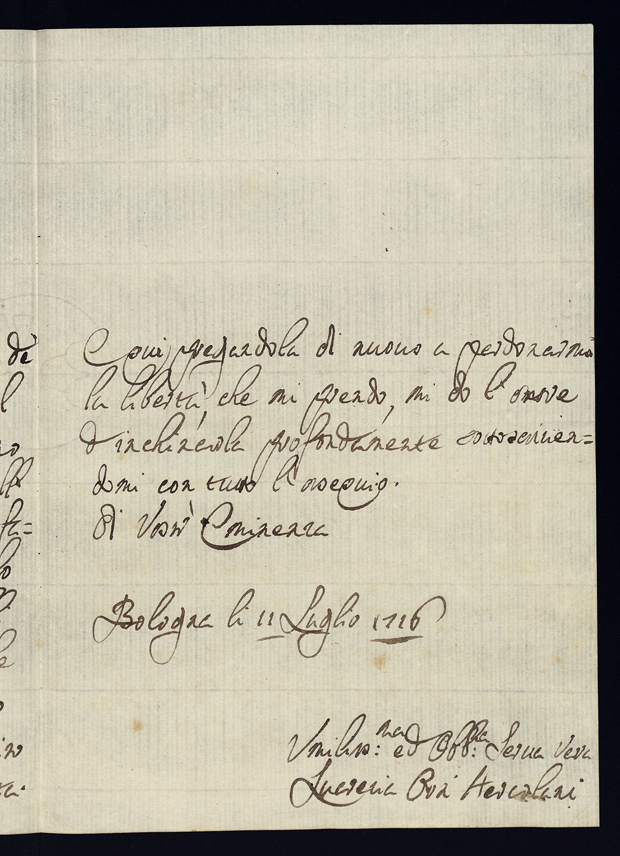 E qui pregandola di nuovo a perdonarmi
la libertà, che mi prendo, mi do l'onore
d'inchinarla profondamente sottoscriven=
domi con tutto l'ossequio.
di Vostr' Eminenza
Bologna li 11 Luglio 1716
Vmiliss:ma ed Obb:ma Serua Vera
Lucrezia Hercolani
dè
l
no
fa=
lo
le
ta.